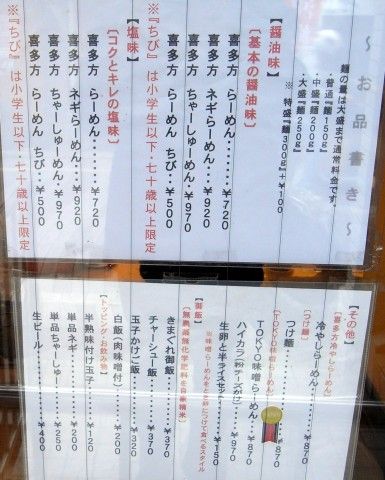 ～お品書き～
麺の量は大盛まで通常料金です。
・普通『麺150g』
・中盛『麺200g』
・大盛『麺250g』
※特盛『麺300g』＋￥100
【醤油味】
〔基本の醤油味〕
喜多方 らーめん……￥720
喜多方 ネギらーめん…￥920
喜多方 ちゃーしゅーめん・￥970
喜多方 らーめん ちび・・￥500
※『ちび』は小学生以下・七十歳以上限定
【塩味】
〔コクとキレの塩味〕
喜多方 らーめん……￥720
喜多方 ネギらーめん…￥920
喜多方 ちゃーしゅーめん・￥970
喜多方 らーめん ちび・・￥500
※『ちび』は小学生以下・七十歳以上限定
【その他】
〔喜多方冷やしらーめん〕
冷やしらーめん……￥870
〔つけ麺〕
つけ麺……￥870
TOKYO味噌らーめん…￥870
ハイカラ(粉チーズがけ)￥970
生卵と半ライスセット￥150
【御飯】
〔無農薬無化学肥料を自家精米〕
きまぐれ御飯……￥370
チャーシュー飯……￥370
玉子かけご飯……￥320
白飯(肉味噌付)……￥200
【トッピング・お飲み物】
半熟味付け玉子……￥120
単品ネギ……￥200
単品ちゃーしゅー……￥250
生ビール……￥400